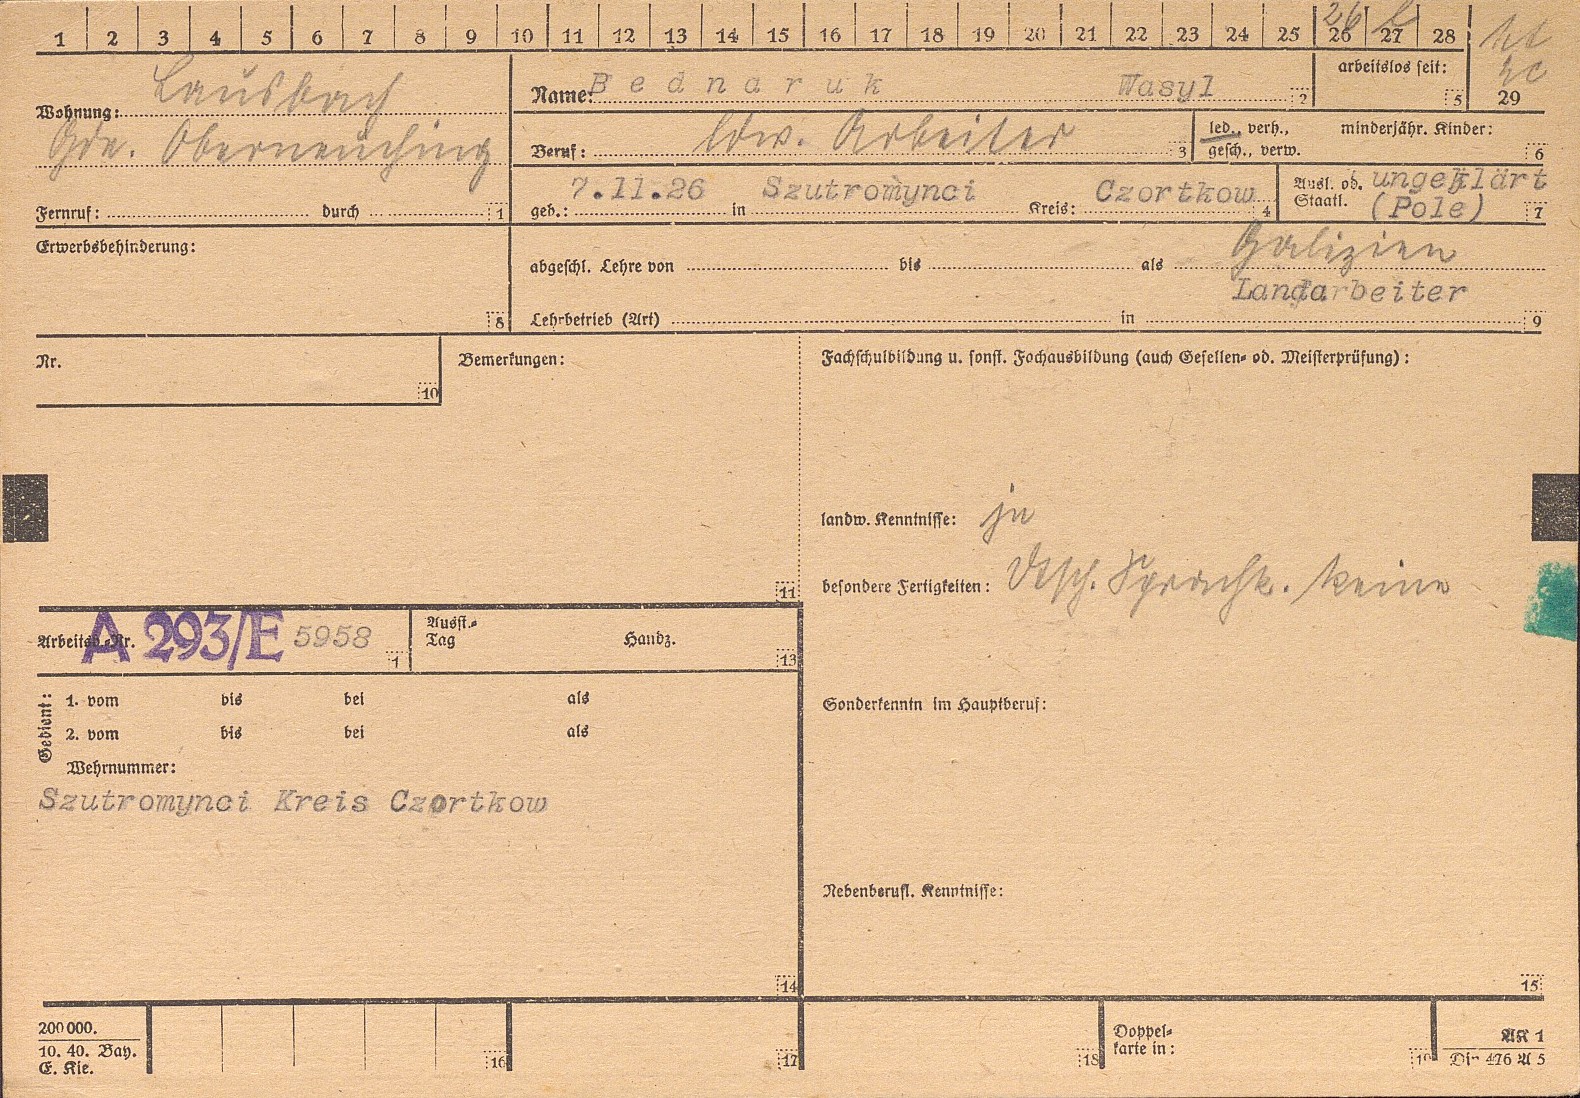 1 2 3 4 5 6 7 8 9 10 11 12 13 14 15 16 17 18 19 20 21 22 23 24 25 26 27 28
26
Wohnung: Lausbach
Gde. Oberneuching
Fernruf: durch 1
Name: Bednaruk Wasyl 2
arbeitslos seit: 5
29
Beruf: ldw. Arbeiter 3
led., verh.,
gesch., verw.
minderjähr. Kinder: 6
geb.: 7.11.26 in Szutromynci Kreis: Czortkow 4
Ausl. od. Staatl. ungeklärt
(Pole) 7
Erwerbsbehinderung: 8
Galizien
abgeschl. Lehre von bis als
Landarbeiter
Lehrbetrieb (Art) in 9
Nr. 10
Bemerkungen: 11
Fachschulbildung u. sonst. Fachausbildung (auch Gesellen- od. Meisterprüfung):
landw. Kenntnisse: ja
besondere Fertigkeiten: Dtsch. Sprachk. keine
Arbeitsb.-Nr. A 293/E 5958 1
Ausst.-
Tag Handz. 13
Gedient:
1. vom bis bei als
2. vom bis bei als
Wehrnummer:
Szutromynci Kreis Czortkow
14
Sonderkenntn im Hauptberuf:
Nebenberufl. Kenntnisse:
15
200 000.
10. 40. Bay.
E. Kie.
16
17
18
Doppel-
karte in:
19
AK 1
Din 476 A 5